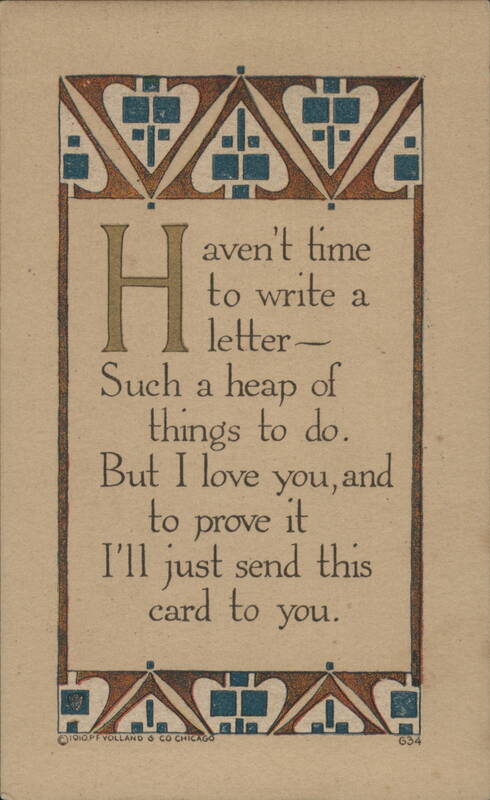 Haven't time
to write a
letter—
Such a heap of
things to do.
But I love you, and
to prove it
I'll just send this
card to you.
©1910. P F VOLLAND & CO CHICAGO
634